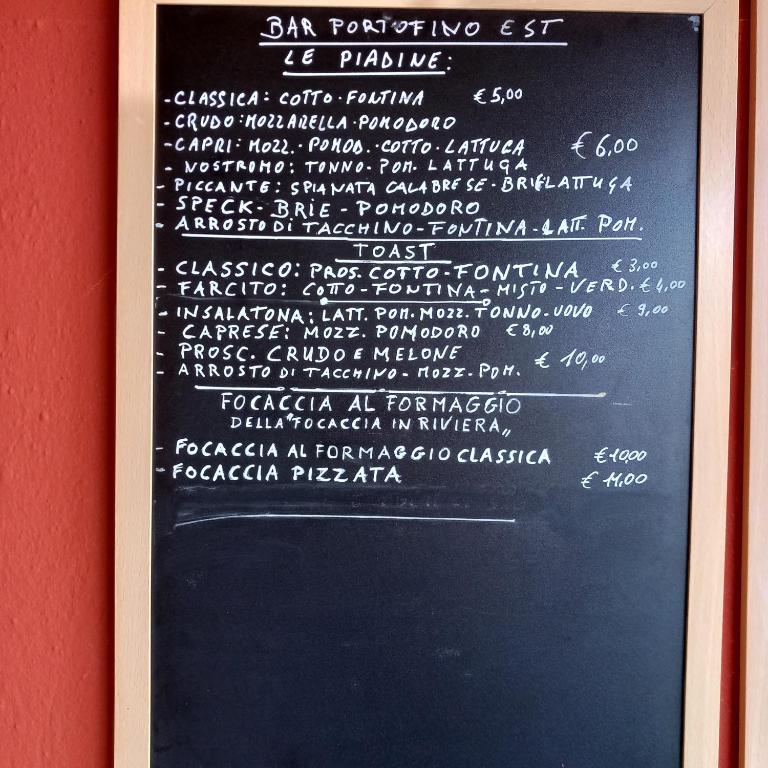 BAR PORTOFINO EST
LE PIADINE:
-CLASSICA: COTTO·FONTINA €5,00
-CRUDO:MOZZARELLA·POMODORO
-CAPRI: MOZZ.·POMOD.·COTTO·LATTUGA €6,00
- NOSTROMO: TONNO·POM. LATTUGA
- PICCANTE: SPIANATA CALABRESE-BRIELATTUGA
- SPECK-BRIE-POMODORO
- ARROSTO DI TACCHINO-FONTINA-LATT. POM.
TOAST
- CLASSICO: PROS. COTTO-FONTINA €3,00
- FARCITO: COTTO-FONTINA-MISTO-VERD. €4,00
- INSALATONA: LATT. POM. MOZZ. TONNO-UOVO €9,00
- CAPRESE: MOZZ. POMODORO €8,00
- PROSC. CRUDO E MELONE
€ 10,00
- ARROSTO DI TACCHINO-MOZZ-POM.
FOCACCIA AL FORMAGGIO
DELLA "FOCACCIA IN RIVIERA„
- FOCACCIA AL FORMAGGIO CLASSICA €10,00
- FOCACCIA PIZZATA € 11,00